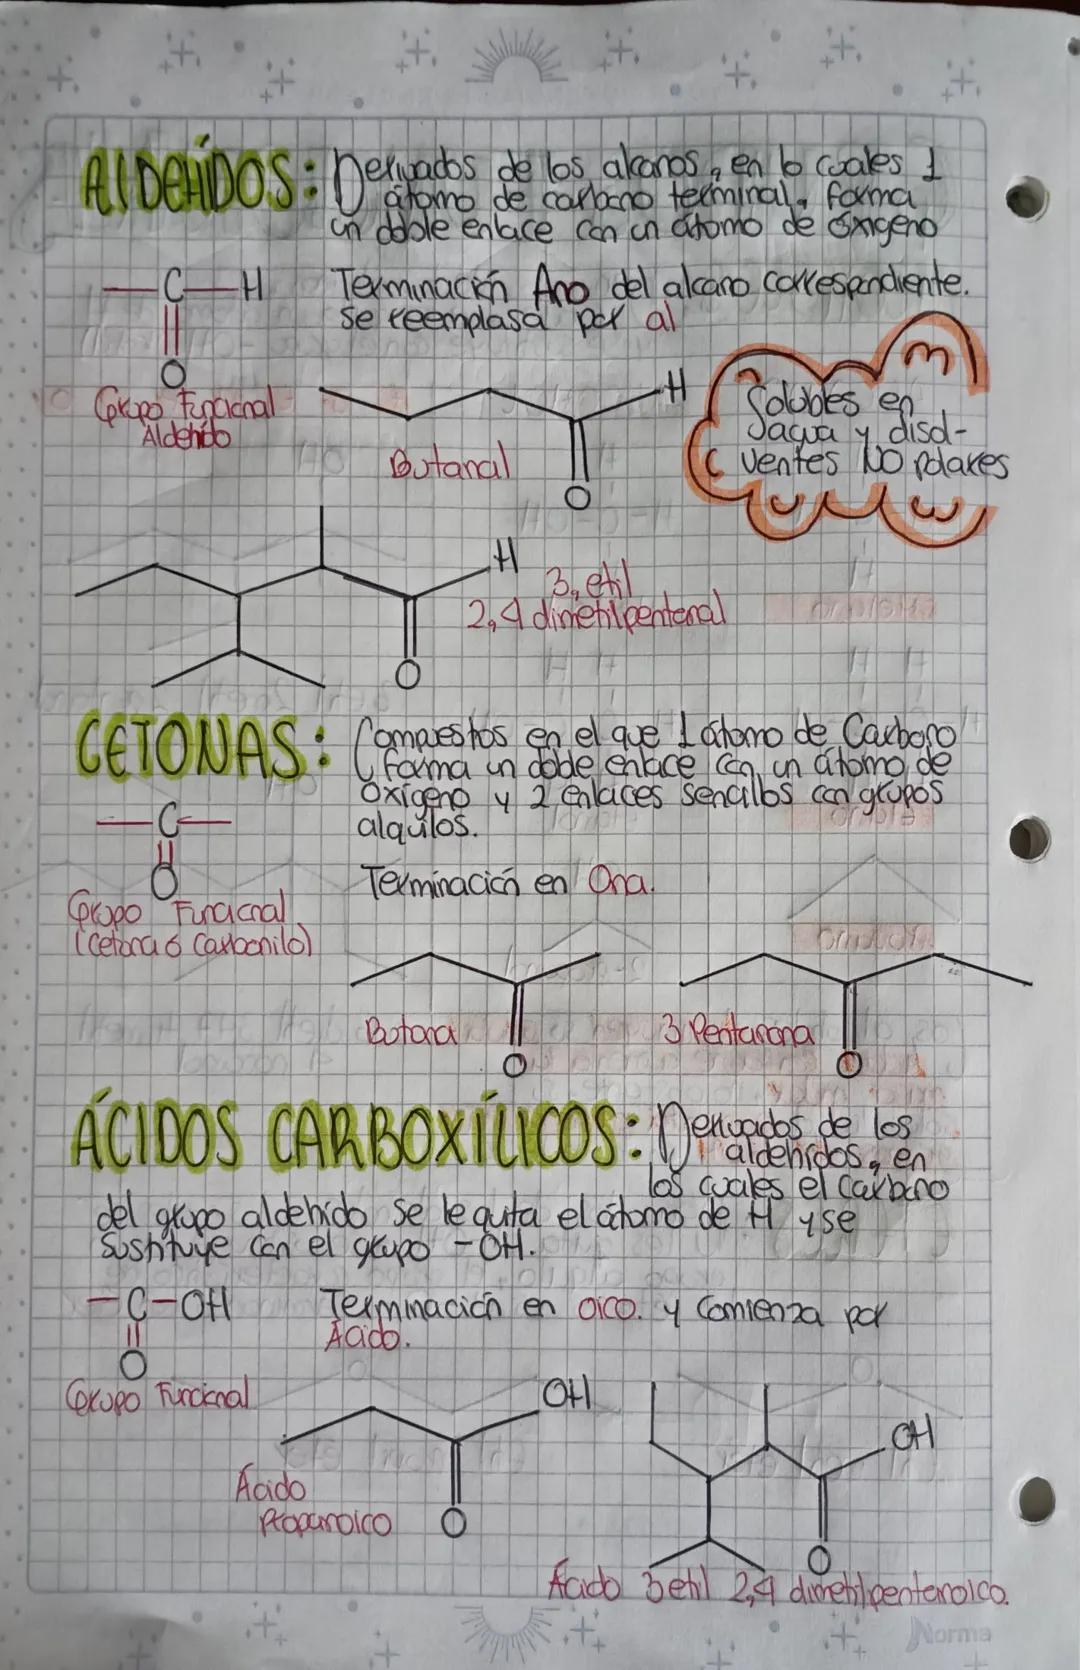 AlDEHÍDOS: Derivados de los alcanos, en lo cuales 1
átomo de carbono terminal, forma
un doble enlace con un átomo de óxigeno
—C—H
O
Terminación Ano del alcano correspondiente.
se reemplasa por al
Grupo Funcional
Aldehído
H
O
Butanal
Solubles en
agua y disol-
ventes NO polares
H
O
3, etil
2,4 dimetilpentanal
CETONAS: Compuestos en el que 1 átomo de Carbono
forma un doble enlace con un átomo de
oxígeno y 2 enlaces sencillos con grupos
alquilos.
—C—
O
Terminación en Ona.
Grupo Funcional
(Cetona ó Carbonilo)
Butona
O
3 Pentanona
O
ÁCIDOS CARBOXÍLICOS: Derivados de los
aldehidos, en
los cuales el carbono
del grupo aldehido se le quita el átomo de H y se
Sustituye con el grupo -OH.
—C—OH
O
Terminación en oico. y Comienza por
Ácido.
Grupo Funcional
OH
O
Ácido
Propanoico
OH
O
Ácido 3etil 2,4 dimetilpentanoico.
Norma